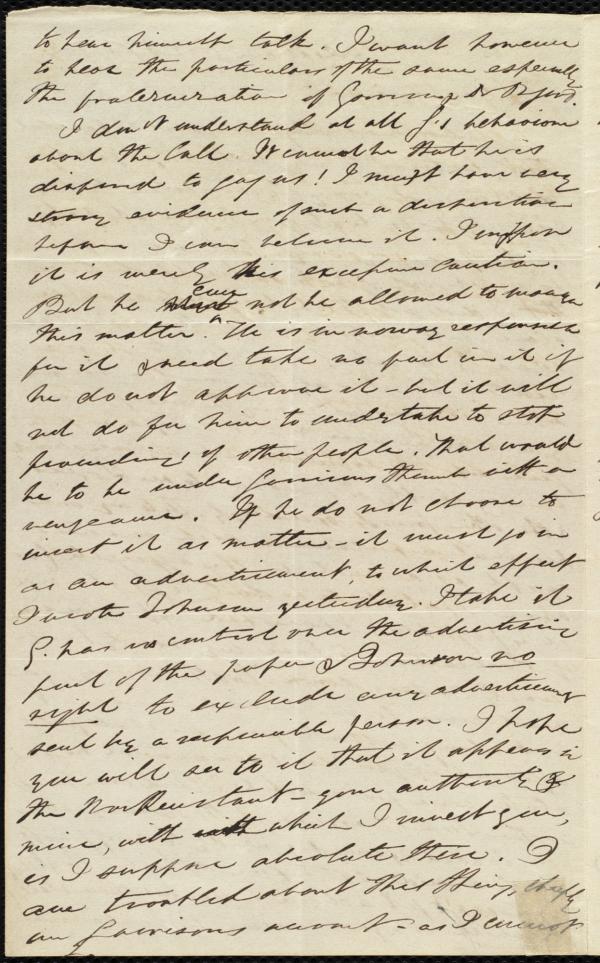 to hear himself talk. I want however
to hear the particulars of the same especially
the fraternization of Garrison &
I don't understand at all G.'s behaviour
about the Call. It cannot be that he is
disposed to gag us! I must have very
strong evidence of such a disposition
before I can believe it. I suppose
it is merely his excessive caution.
But he must not be allowed to manage
this matter. He is in no way responsible
for it & need take no part in it if
he do not approve it - but it will
not do for him to undertake to stop
proceedings of other people. That would
be to be under Garrison's thumb with a
vengeance. If he do not choose to
insert it as matter - it must go in
as an advertisement, to which effect
I wrote Johnson yesterday. I take it
G. has no control over the advertising
part of the paper & Johnson no
right to exclude any advertisement
sent by a responsible person. I hope
you will see to it that it appears in
the Non Resistant - your authority &
mine, with which I invest you,
is I suppose absolute there. I
am troubled about this thing, chiefly
on Garrison's account - as I cannot